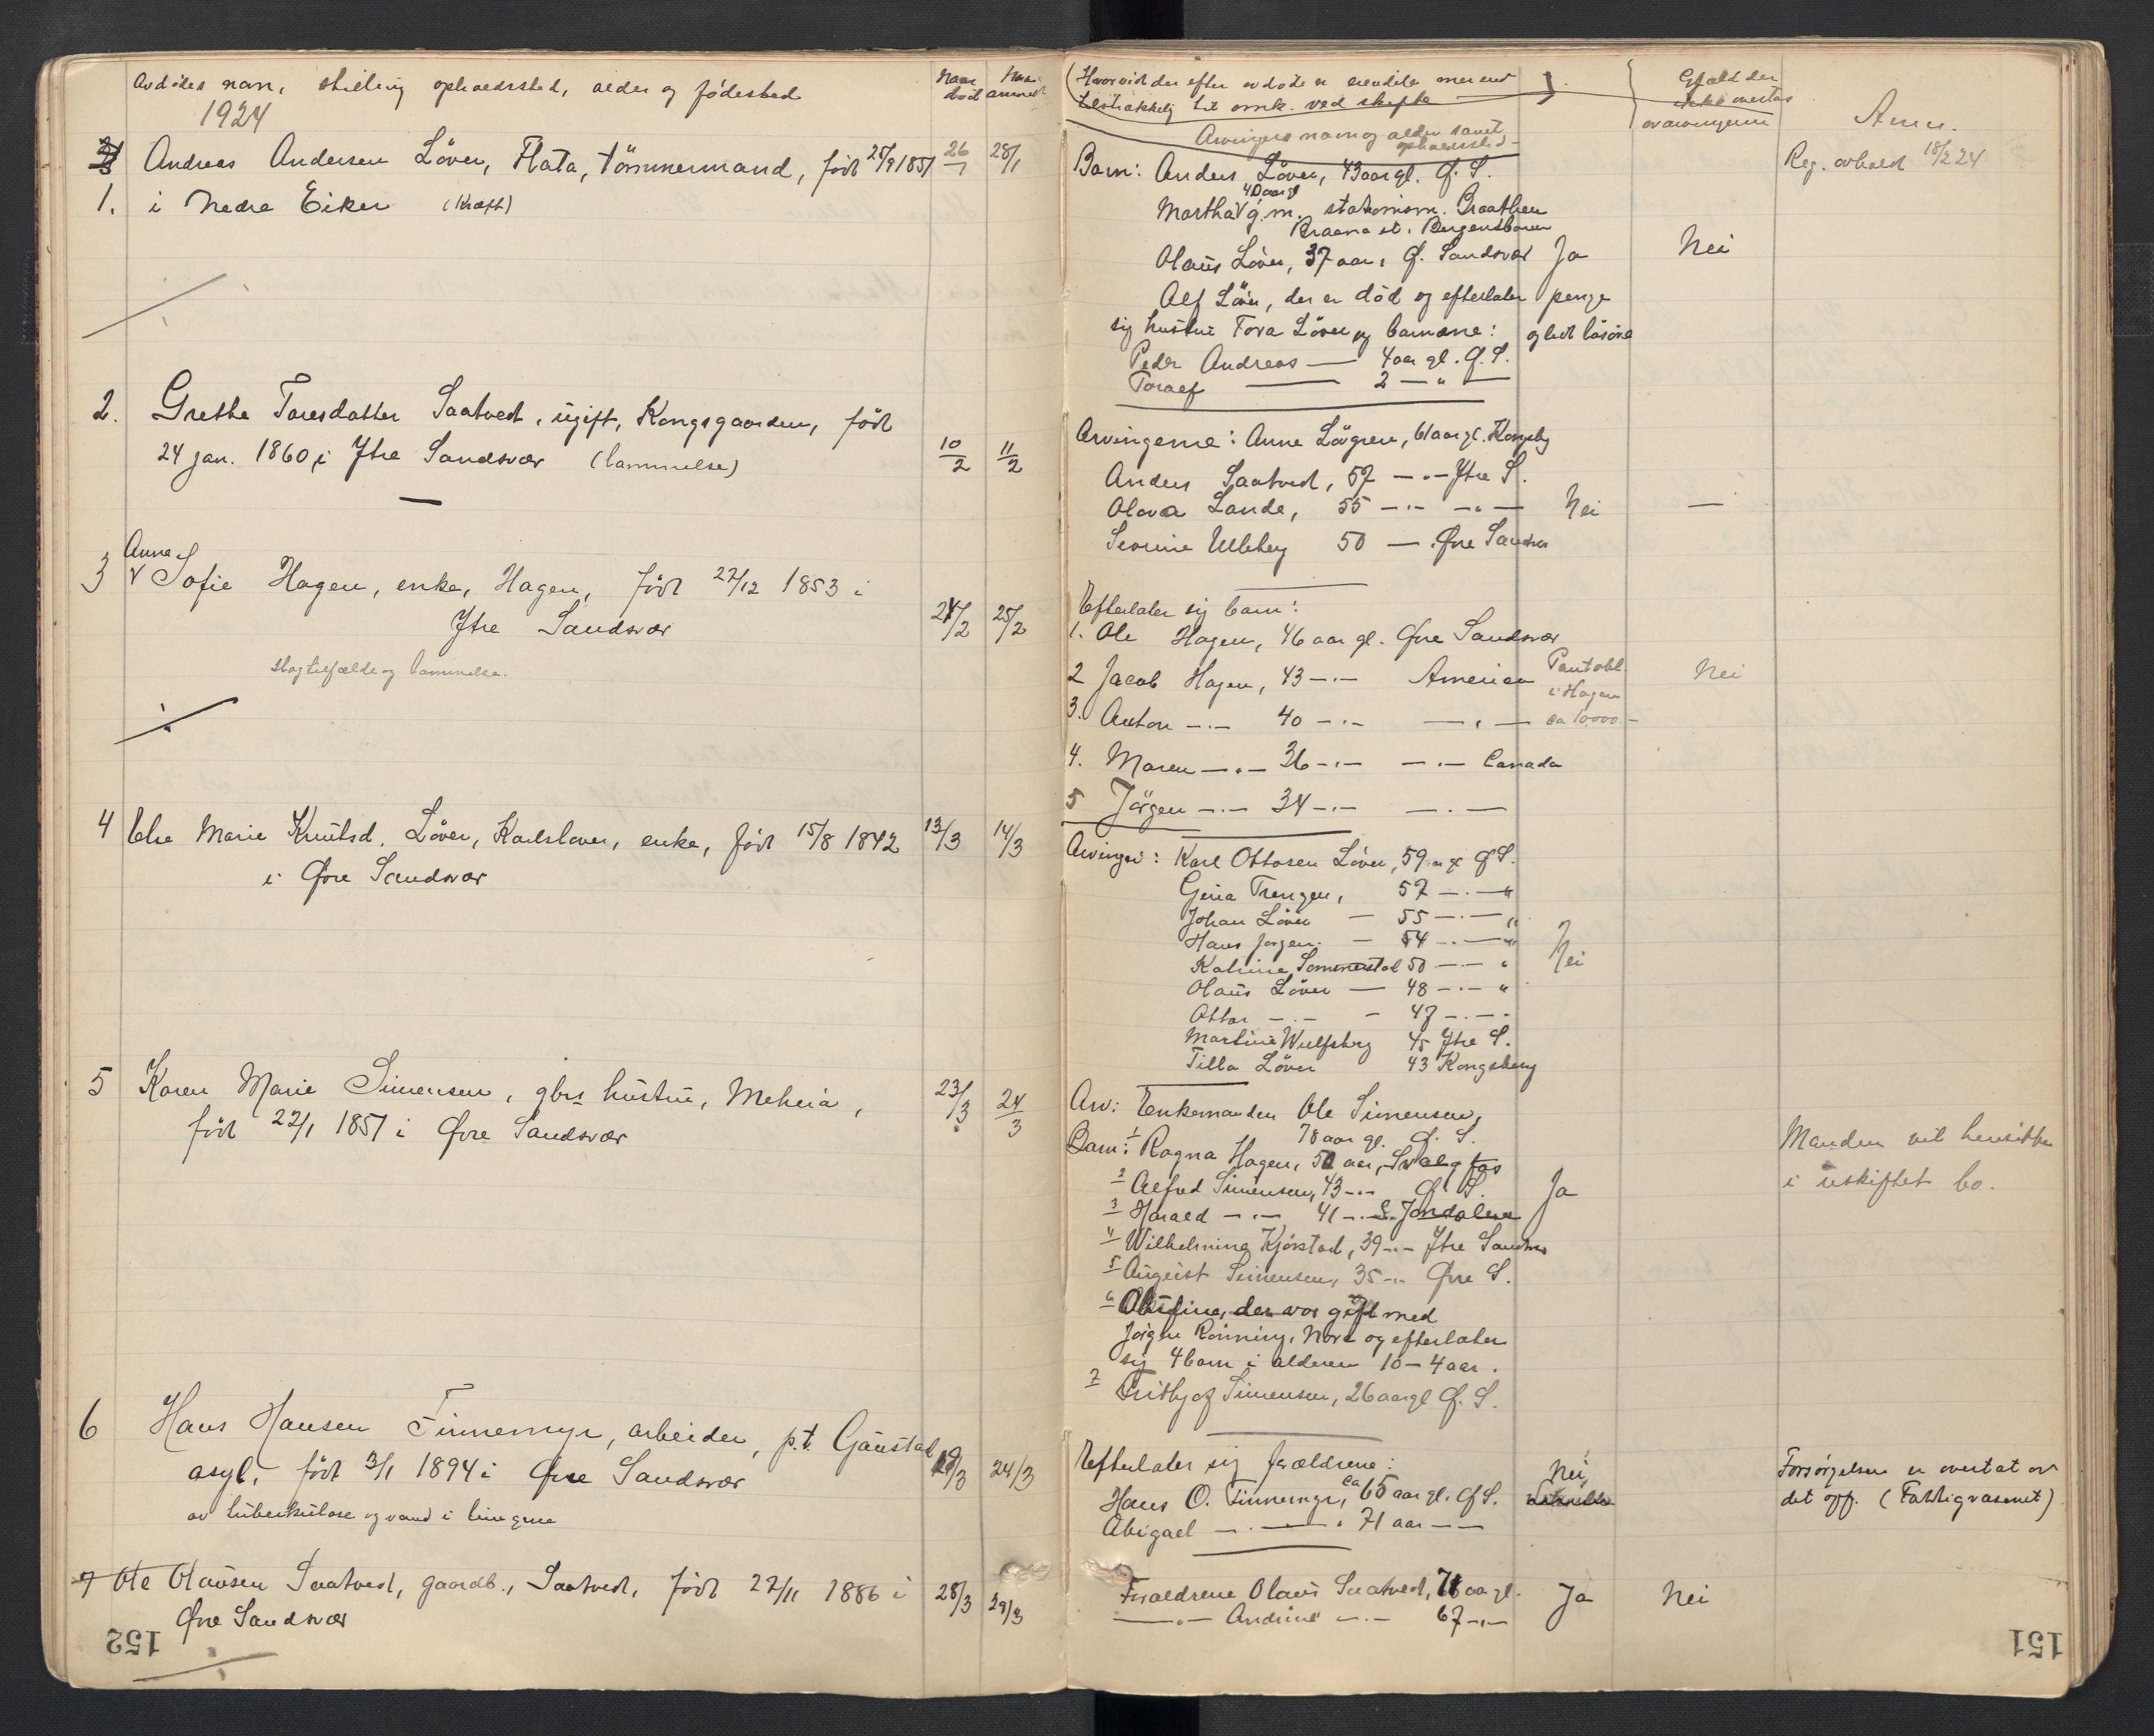 Avdødes navn, stilling opholdssted, alder og fødested
Naar død
Naar anmeldt
1924
1. Andreas Andersen Löver, Flata, tömmermand, født 25/9 1851 26/1 28/1
i Nedre Eiker (Kræft)
2. Grethe Toresdatter Saatvedt, ugift, Kongsgaarden, født
24 jan. 1860 i Ytre Sandsvær (lammelse) 10/2 11/2
3 Anna Sofie Hagen, enke, Hagen, født 27/12 1853 i
Ytre Sandsvær 24/2 25/2
slagtilfælde og lammelse.
4 Else Marie Knutsd. Löver, Karlsløver, enke, født 15/8 1842 13/3 14/3
i Øvre Sandsvær
5 Karen Marie Simensen, gbrs hustru, Meheia, 23/3 24/3
født 22/1 1851 i Øvre Sandsvær
6 Hans Hansen Tinnemyr, arbeider, p.t. Gaustad
asyl, født 3/1 1894 i Øvre Sandsvær 19/3 24/3
av tuberkulose og vand i lungene
7 Ole Olausen Saatvedt, gaardb., Saatvedt, født 27/11 1886 i 28/3 29/3
Øvre Sandsvær
152
(Hvorvidt der efter avdøde er eiendele mer end
tilstrækkelig til omk. ved skifte
Gjæld der
ikke overtas
av arvingerne
Anm.
Arvingers navn og alder samt
opholdssted
Barn: Anders Löver, 43 aar gl. Ø. S.
Reg. avholdt 18/2 24
40 aar gl
Martha g.m. stationsm. Braathen
st. Bergensbanen
Olaus Löver, 37 aar, Ø. Sandsvær Ja Nei
Alf Löver, der er död og efterlater penge
sig hustru Tora Löver og barnene: og litt løsøre
Peder Andreas — 4 aar gl. Ø. S.
Toralf — 2 — " —
Arvingerne: Anne Lövgren, 61 aar gl. Kongsbg
Anders Saatvedt, 57 — " — Ytre S.
Olava Lande, 55 — " — — " — Nei —
Severine Ulleberg 50 — Øvre Sandsvær
Efterlater sig barn:
1. Ole Hagen, 46 aar gl. Øvre Sandsvær
2 Jacob Hagen, 43 — " — Amerika Pantobl. Nei
i Hagen
3. Anton — " — 40 — " — — " — ca 10000.-
4. Maren — " — 36 — " — — " — Canada
5 Jörgen — " — 34 — " — — " —
Arvinger: Karl Ottosen Löver, 59 aar gl Ø S.
Gina Trengen, 57 — " — "
Johan Löver — 55 — " — "
Hans Jørgen — 54 — " — "
Katrine Sommerstad 50 — " — " Nei
Olaus Löver — 48 — " — "
Ottar — " — — 47 — " — "
Martine Wulfsberg 45 Ytre S.
Tilla Löver 43 Kongsberg
Arv: Enkemanden Ole Simensen,
78 aar gl. Ø. S.
Barn: 1 Ragna Hagen, 50 aar, Svelgfos
2 Alfred Simensen, 43 — " — Ø. S. Ja
3 Harald — " — 41 — " — S. Jondalen
4 Wilhelmine Kjörstad, 39 — " — Ytre Sandsvær
5 August Simensen, 35 — " — Øvre S.
6 Olufine, der var gift med
Jörgen Rönning, Nore og efterlater
sig 4 barn i alderen 10 – 4 aar.
7 Frithjof Simensen, 26 aar gl Ø. S.
Manden vil hensitte
i uskiftet bo.
Efterlater sig forældrene:
Hans O. Tinnemyr, ca 65 aar gl. Ø S. Nei
Abigael — " — 71 aar — " —
Forsørgelsen er overtat av
det off. (Fattigvæsenet)
Forældrene Olaus Saatvedt, 71 aar gl. Ja Nei
— " — Andrine — " — 67 — " —
151